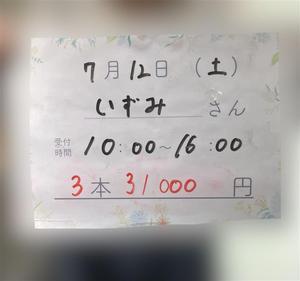 7月12日(土)
いずみさん
受付時間 10:00~16:00
3本 31000円